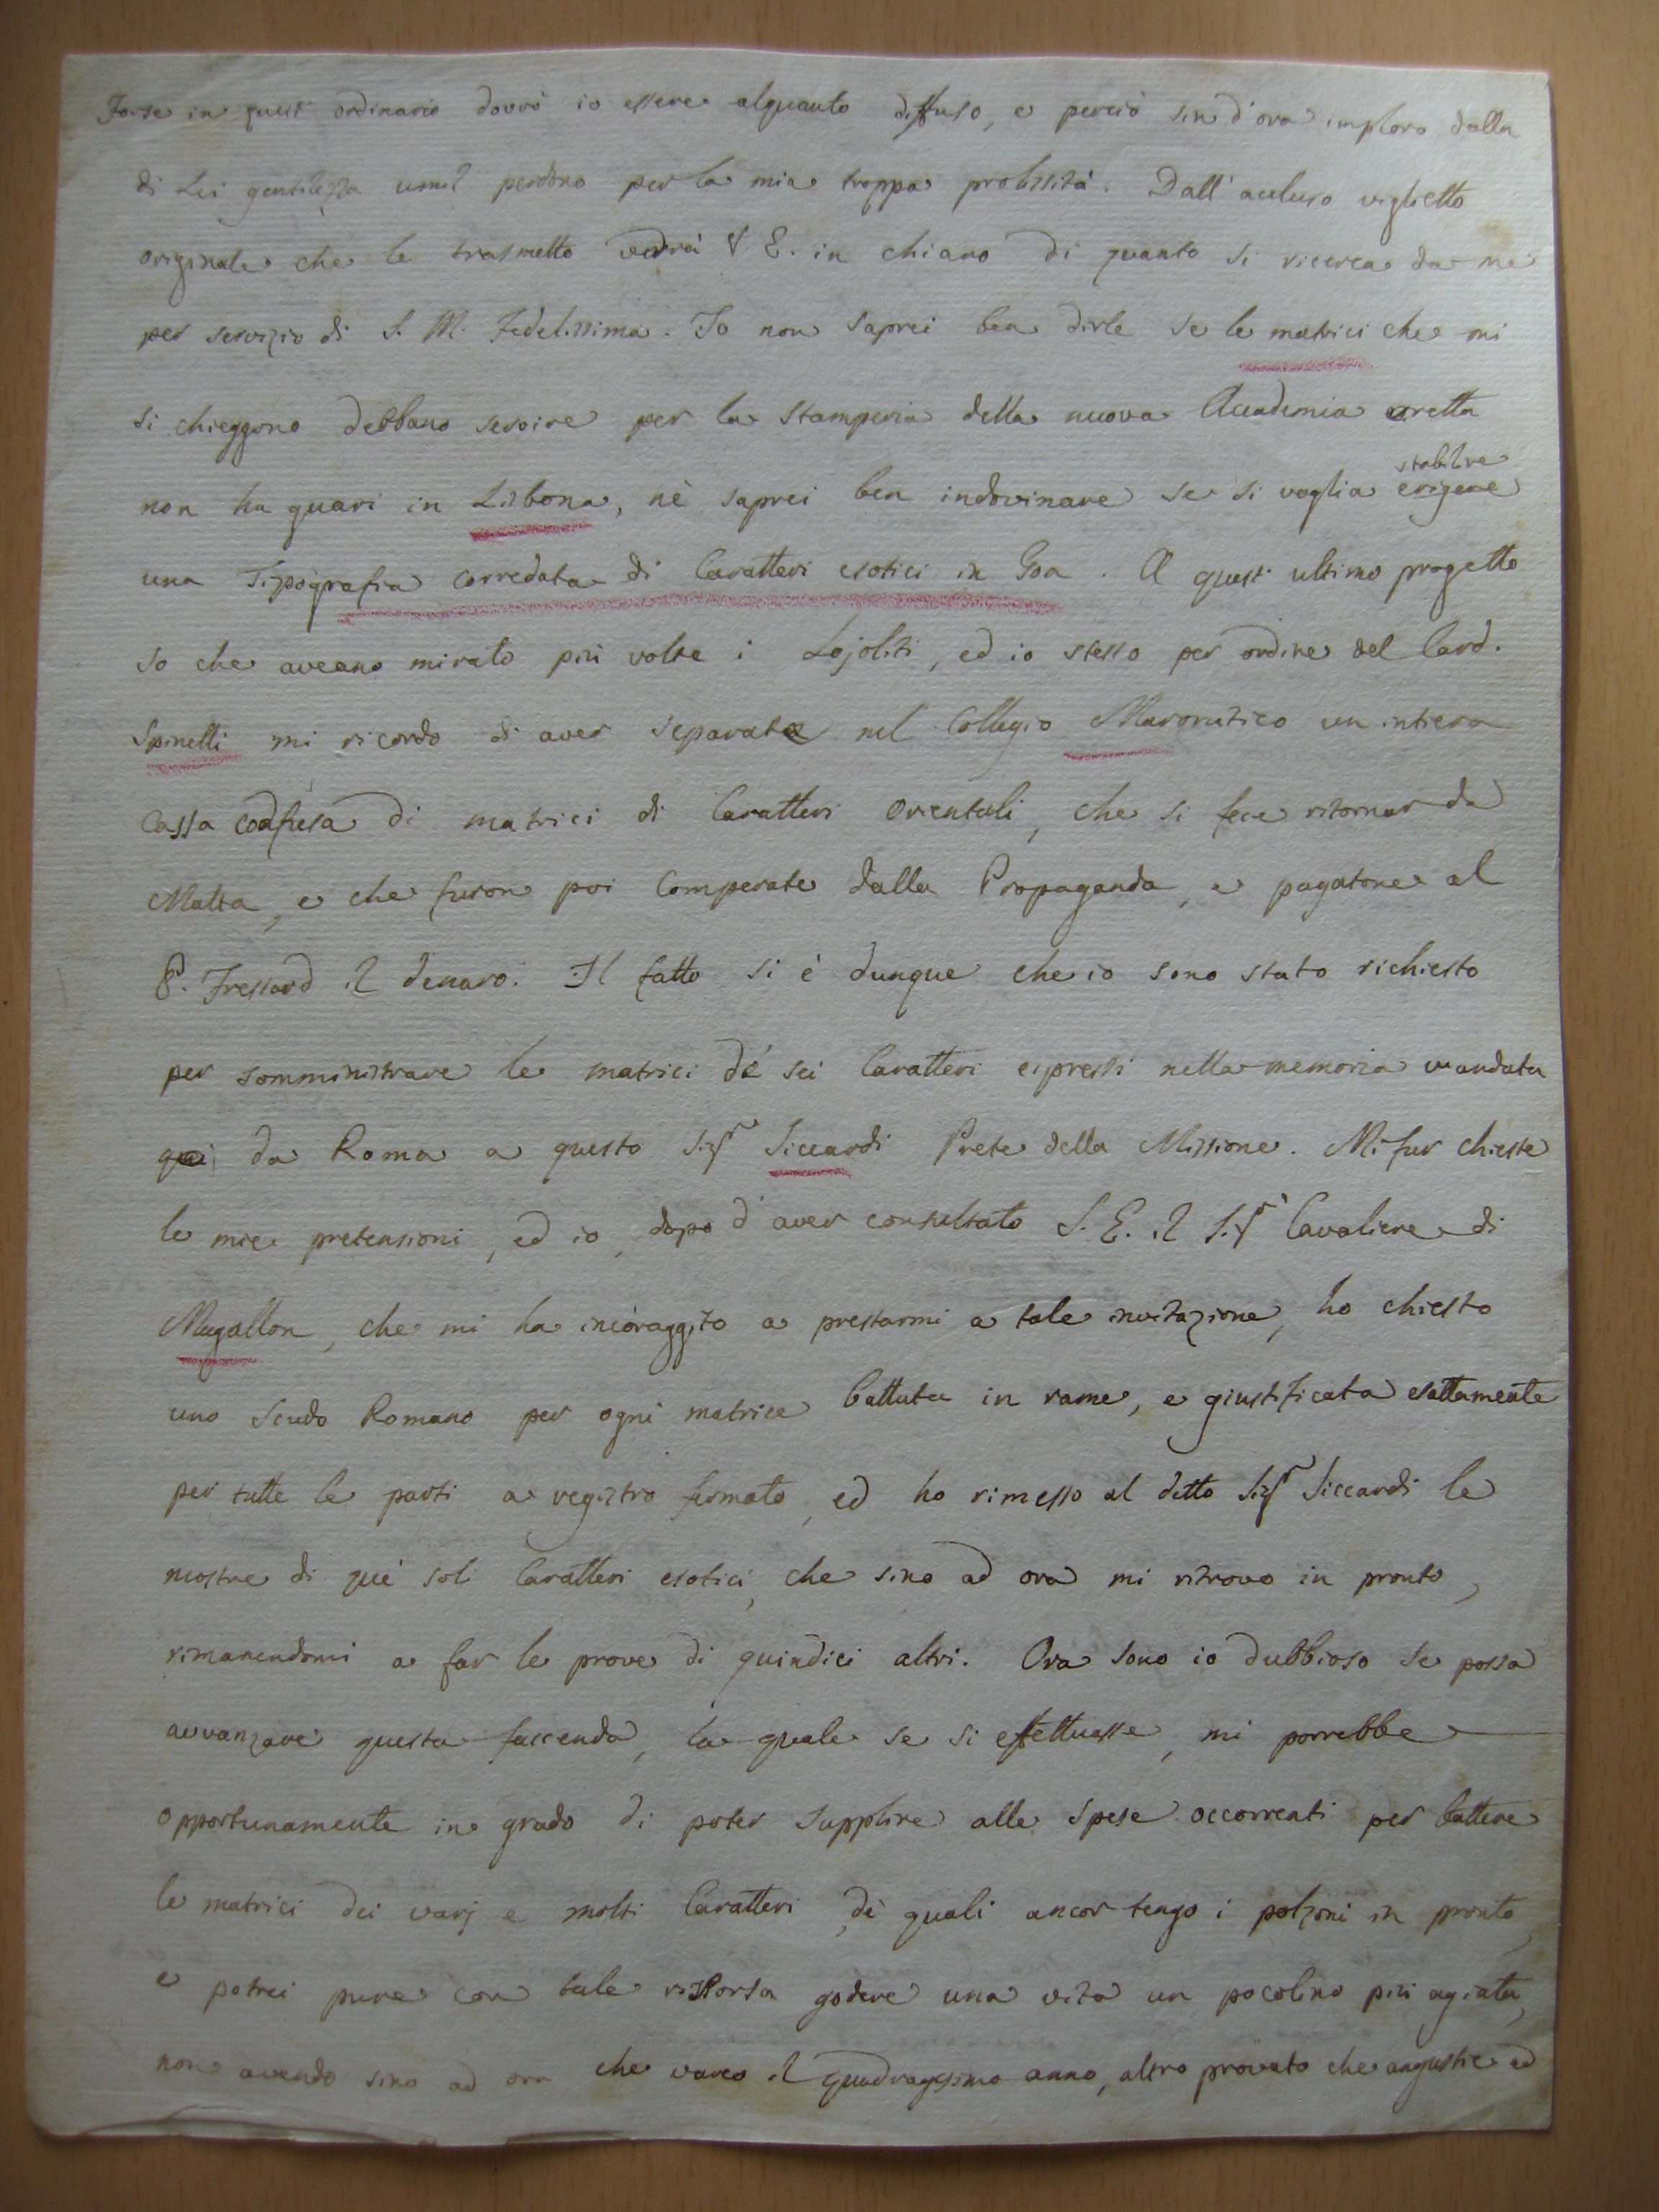 Forse in quest' ordinario dovrò io essere alquanto diffuso, e perciò sin d'ora imploro dalla
di Lei gentilezza umil perdono per la mia troppa prolissità. Dall' acluso viglietto
originale che le trasmetto vedrà V. E. in chiaro di quanto si ricerca da me
per servizio di S. M. Fedelissima. Io non saprei ben dirle se le matrici che mi
si chieggono debbano servire per la Stamperia della nuova Accademia eretta
non ha guari in Lisbona, nè saprei ben indovinare se si voglia erigere
stabilire
una Tipografia corredata di Caratteri esotici in Goa. A quest' ultimo progetto
so che aveano mirato più volte i Lojoliti, ed io stesso per ordine del Card.
Spinelli mi ricordo di aver separata nel Collegio Maronitico un intiera
Cassa confusa di matrici di Caratteri Orientali, che si fece ritornar da
Malta, e che furon poi Comperate dalla Propaganda, e pagatone al
P. Fressard il denaro. Il fatto si è dunque che io sono stato richiesto
per somministrare le matrici de' sei Caratteri espressi nella memoria mandata
qui da Roma a questo Sigr Siccardi Prete della Missione. Mi fur chieste
le mie pretensioni, ed io, dopo d'aver consultato S. E. il Sigr Cavaliere di
Magallon, che mi ha incoraggito a prestarmi a tale invitazione, ho chiesto
uno Scudo Romano per ogni matrice battuta in rame, e giustificata esattamente
per tutte le parti a registro fermato, ed ho rimesso al detto Sigr Siccardi le
mostre di que' soli Caratteri esotici, che sino ad ora mi ritrovo in pronto,
rimanendomi a far le prove di quindici altri. Ora sono io dubbioso se possa
avvanzare questa faccenda, la quale se si effettuasse, mi porrebbe
opportunamente in grado di poter supplire alle spese occorrenti per battere
le matrici dei varj e molti Caratteri, de' quali ancor tengo i polzoni in pronto,
e potrei pure con tale risorsa godere una vita un pocolino più agiata,
non avendo sino ad ora che varco il quadragesimo anno, altro provato che angustie ed